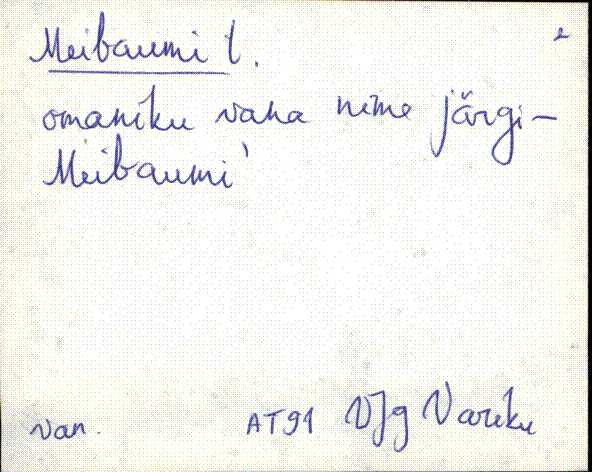 Meibaumi t.
omaniku vana nime järgi –
Meibaumi'
van. AT91 VJg Variku